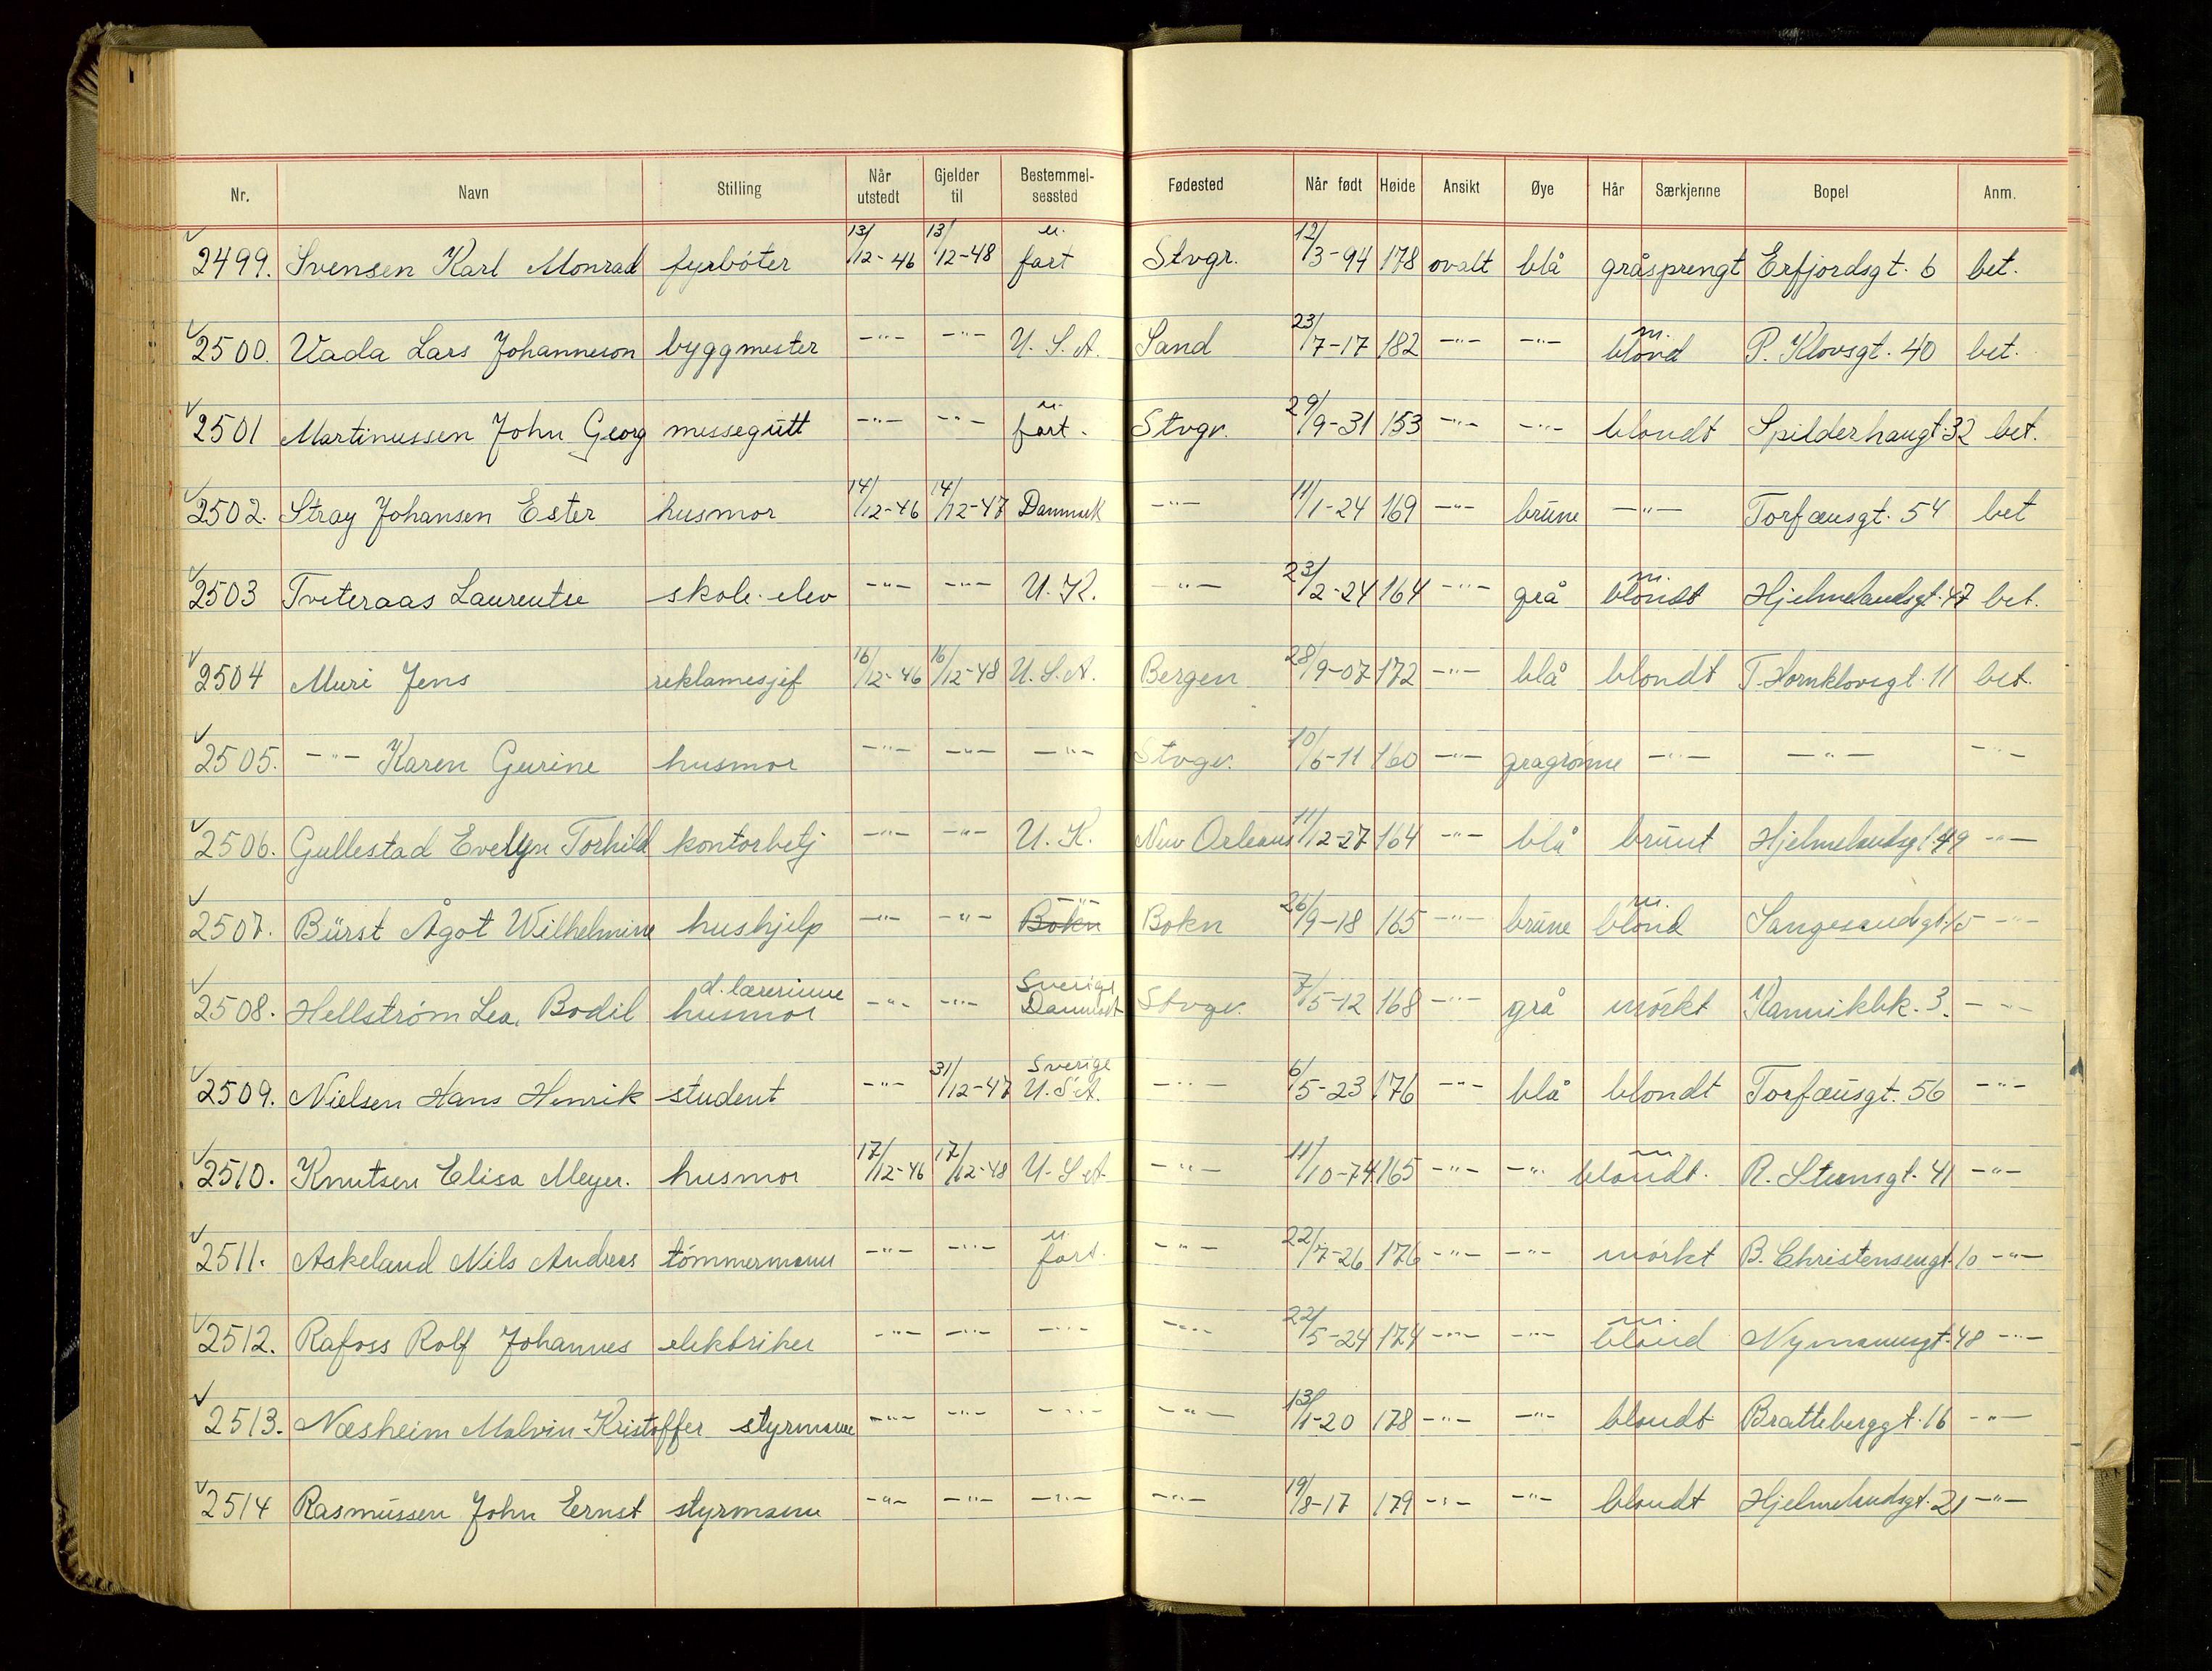 Nr. Navn Stilling Når utstedt Gjelder til Bestemmelsessted Fødested Når født Høide Ansikt Øye Hår Særkjenne Bopel Anm.
2499. Svensen Karl Monrad fyrbøter 13/12-46 13/12-48 u. fart Stvgr. 12/3-94 178 ovalt blå gråsprengt Erfjordsgt. 6 bet.
2500. Vada Lars Johanneson byggmester -"- -"- U.S.A. Sand 23/7-17 182 -"- -"- m. blond P. Klovsgt. 40 bet.
2501 Martinussen John Georg messegutt -"- -"- u. fart. Stvgr. 29/9-31 153 -"- -"- blondt Spilderhaugt 32 bet.
2502. Stray Johansen Ester husmor 14/12-46 14/12-47 Danmark -"- 11/1-24 169 -"- brune -"- Torfæusgt. 54 bet
2503 Tveteraas Laurentse skole-elev -"- -"- U.K. -"- 23/2-24 164 -"- grå m. blondt Hjelmelandsgt. 47 bet.
2504 Muri Jens reklamesjef 16/12-46 16/12-48 U.S.A. Bergen 28/9-07 172 -"- blå blondt T. Hornklovsgt. 11 bet.
2505. -"- Karen Gurine husmor -"- -"- -"- Stvgr. 10/6-11 160 -"- grågrønne -"- -"- -"-
2506. Gullestad Evelyn Torhild kontorbetj -"- -"- U.K. New Orleans 11/12-27 164 -"- blå brunt Hjelmelandsgt. 49 -"-
2507. Bürst Ågot Wilhelmine hushjelp -"- -"- -"- Bokn Bokn 26/9-18 165 -"- brune m. blond Sangesandsgt. 15 -"-
2508. Hellstrøm Lea, Bodil d. lærerinne husmor -"- -"- Sverige Danmark Stvgr. 7/5-12 168 -"- grå mørkt Kannikbk. 3. -"-
2509. Nielsen Hans Henrik student -"- 31/12-47 Sverige U.S.A. -"- 6/5-23 176 -"- blå blondt Torfæusgt. 56 -"-
2510. Knutsen Elisa Meyer. husmor 17/12-46 17/12-48 U.S.A. -"- 11/10-74 165 -"- -"- m blondt. R. Steensgt. 41 -"-
2511. Askeland Nils Andreas tømmermann -"- -"- u. fart. -"- 22/7-26 176 -"- -"- mørkt B. Christensengt. 10 -"-
2512. Rafoss Rolf Johannes elektriker -"- -"- -"- -"- 22/5-24 174 -"- -"- m. blond Nymannsgt. 48 -"-
2513. Næsheim Malvin Kristoffer styrmann -"- -"- -"- -"- 13/1-20 178 -"- -"- blondt Bratteberggt. 16 -"-
2514 Rasmussen John Ernst styrmann -"- -"- -"- -"- 19/8-17 179 -"- -"- blondt Hjelmelandsgt. 21 -"-